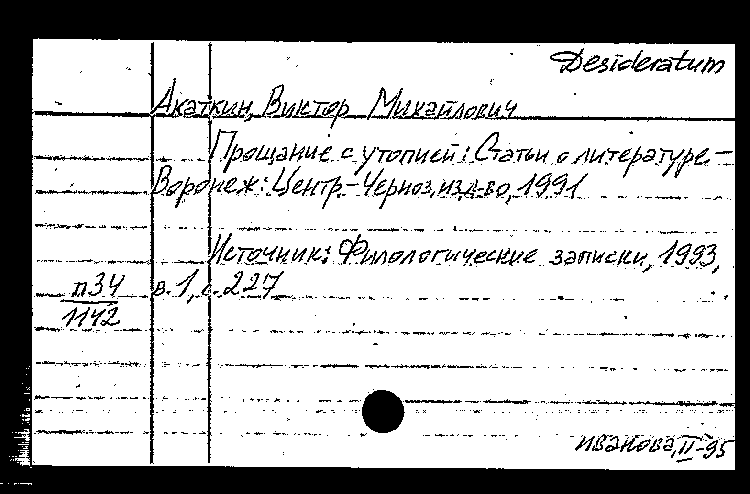 Desideratum
Акаткин, Виктор Михайлович
Прощание с утопией: Статьи о литературе.-
Воронеж: Центр.-Черноз. изд-во, 1991
Источник: Филологические записки, 1993,
п34 в. 1, с. 227
1142
Иванова, II-95